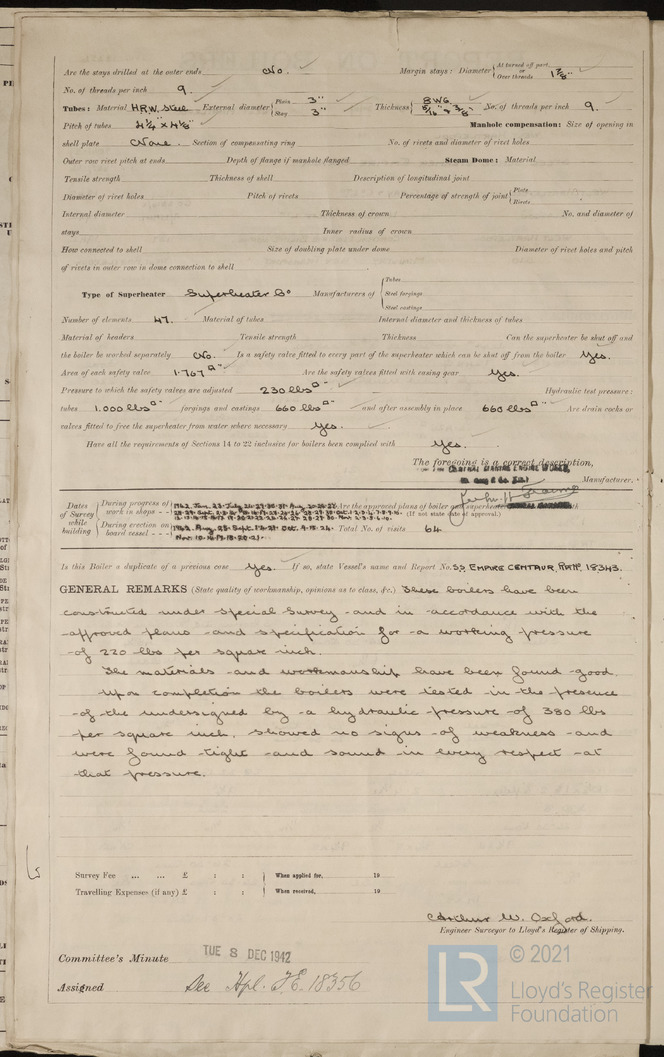 Are the stays drilled at the outer ends No. Margin stays: Diameter { At turned off part, or Over threads 1 7/8"
No. of threads per inch 9.
Tubes: Material H.R.W. Steel External diameter { Plain 3" Stay 3" Thickness { 8 WG. 5/16" & 3/8" No. of threads per inch 9.
Pitch of tubes 4 1/4" x 4 1/8" Manhole compensation: Size of opening in
shell plate None. Section of compensating ring No. of rivets and diameter of rivet holes
Outer row rivet pitch at ends Depth of flange if manhole flanged Steam Dome: Material
Tensile strength Thickness of shell Description of longitudinal joint
Diameter of rivet holes Pitch of rivets Percentage of strength of joint { Plate Rivets
Internal diameter Thickness of crown No. and diameter of
stays Inner radius of crown
How connected to shell Size of doubling plate under dome Diameter of rivet holes and pitch
of rivets in outer row in dome connection to shell
Type of Superheater Superheater Co Manufacturers of { Tubes Steel forgings Steel castings
Number of elements 47. Material of tubes Internal diameter and thickness of tubes
Material of headers Tensile strength Thickness Can the superheater be shut off and
the boiler be worked separately No. Is a safety valve fitted to every part of the superheater which can be shut off from the boiler Yes.
Area of each safety valve 1.767 □" Are the safety valves fitted with easing gear Yes.
Pressure to which the safety valves are adjusted 230 lbs □" Hydraulic test pressure:
tubes 1,000 lbs □" forgings and castings 660 lbs □" and after assembly in place 660 lbs □" Are drain cocks or
valves fitted to free the superheater from water where necessary Yes.
Have all the requirements of Sections 14 to 22 inclusive for boilers been complied with Yes.
The foregoing is a correct description,
CENTRAL MARINE ENGINE WORKS,
Manufacturer.
Dates of Survey while building { During progress of work in shops - - 1942. Are the approved plans of boiler and superheater
(If not state date of approval.)
During erection on board vessel - - - 1942. Aug. 28. Sept. Oct. 9. 15. 24. Nov. 10. 14. 17. 18. 20. 21. Total No. of visits 64
Is this Boiler a duplicate of a previous case Yes. If so, state Vessel's name and Report No. SS EMPIRE CENTAUR, Rpt No. 18343.
GENERAL REMARKS (State quality of workmanship, opinions as to class, &c.) These boilers have been
constructed under special survey and in accordance with the
approved plans and specification for a working pressure
of 220 lbs per square inch.
The materials and workmanship have been found good.
Upon completion the boilers were tested in the presence
of the undersigned by a hydraulic pressure of 380 lbs
per square inch, showed no signs of weakness and
were found tight and sound in every respect at
that pressure.
Survey Fee ... ... £ : : When applied for, 19
Travelling Expenses (if any) £ : : When received, 19
Arthur W. Oxford.
Engineer Surveyor to Lloyd's Register of Shipping.
Committee's Minute TUE 8 DEC 1942
Assigned See Hpl. F.E. 18356
LR © 2021
Lloyd's Register
Foundation